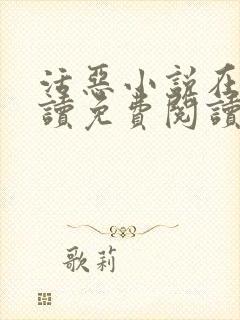 活惡小說在
讀免費閱讀
歌莉